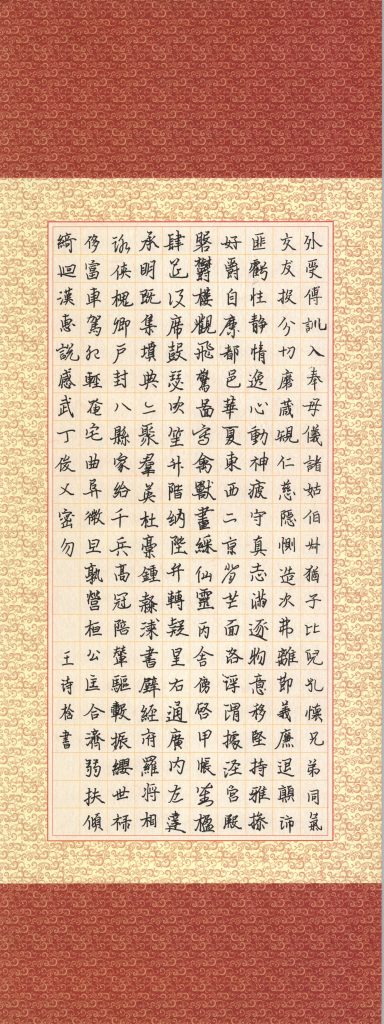 外受傅訓入奉母儀諸姑伯叔猶子比兒孔懷兄弟同氣
交友投分切磨箴規仁慈隱惻造次弗離節義廉退顛沛
匪虧性靜情逸心動神疲守真志滿逐物意移堅持雅操
好爵自縻都邑華夏東西二京背芒面洛浮渭據涇宮殿
盤鬱樓觀飛驚圖寫禽獸畫綵仙靈丙舍傍啓甲帳對楹
肆筵設席鼓瑟吹笙升階納陛弁轉疑星右通廣內左達
承明既集墳典亦聚羣英杜稾鍾隸漆書壁經府羅將相
路俠槐卿戶封八縣家給千兵高冠陪輦驅轂振纓世祿
侈富車駕肥輕奄宅曲阜微旦孰營桓公匡合濟弱扶傾
綺迴漢惠說感武丁俊乂密勿 王诗榕書